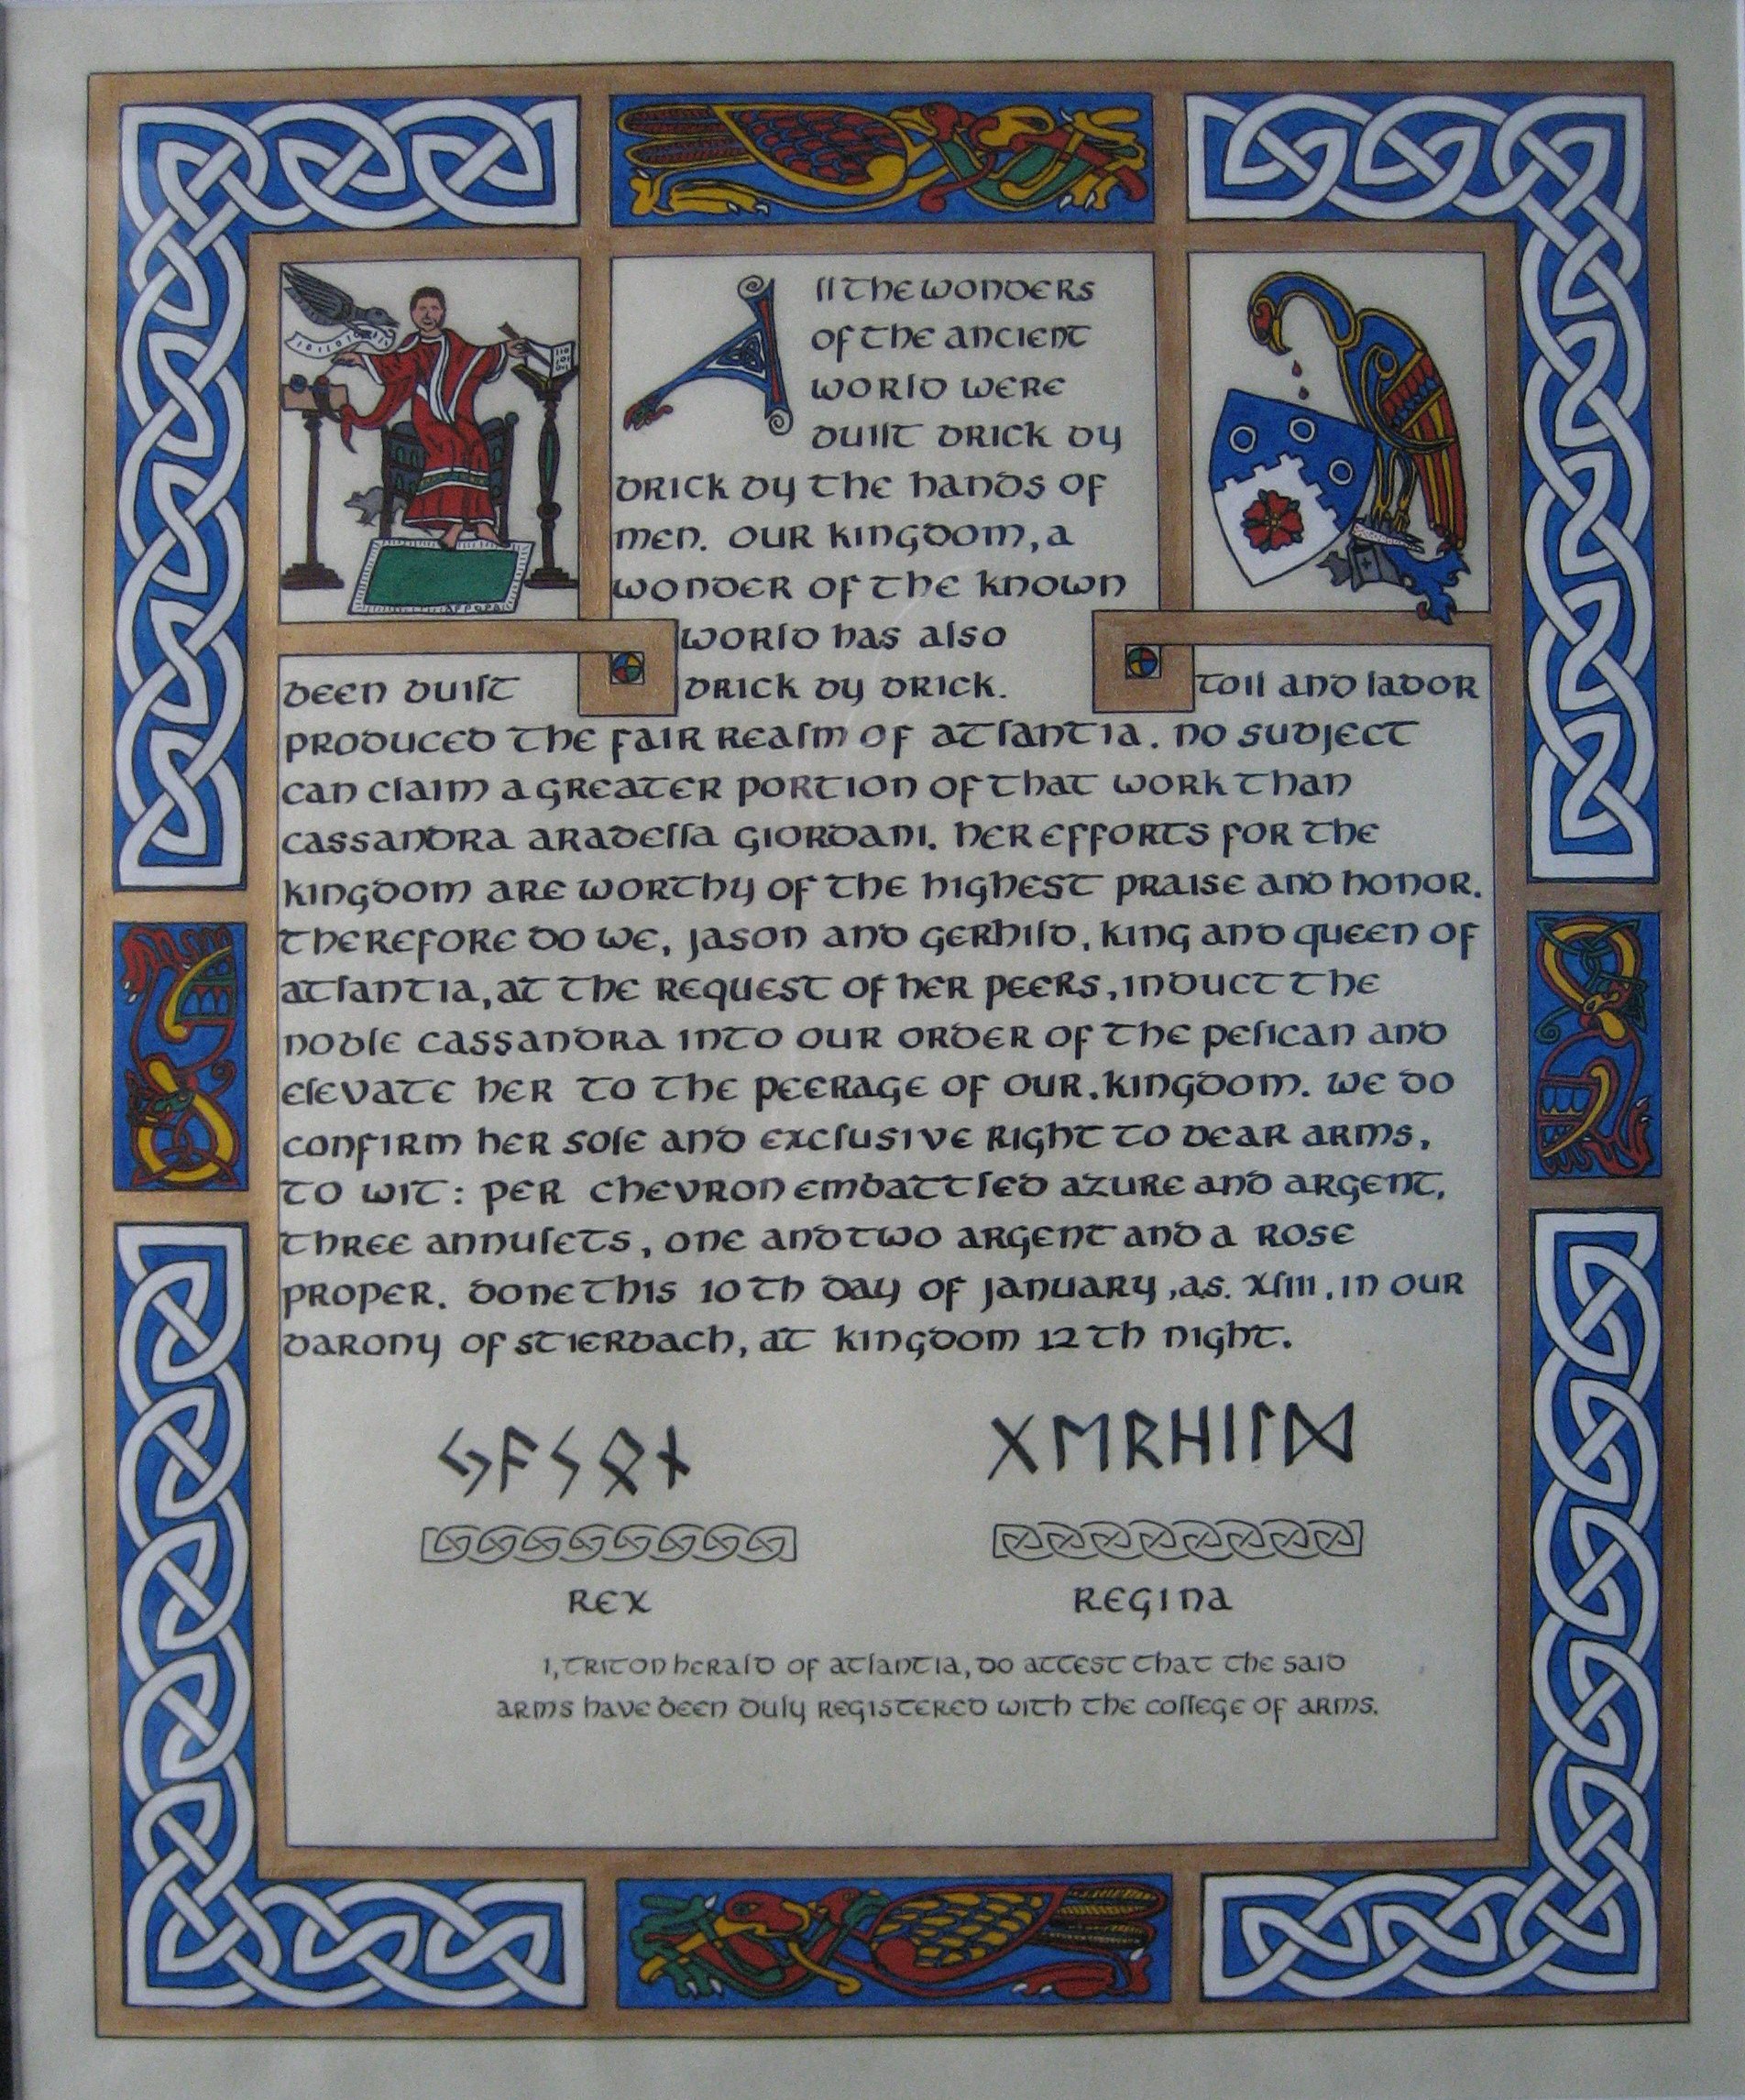 All the wonders
of the ancient
world were
built brick by
brick by the hands of
men. Our kingdom, a
wonder of the known
world has also
been built brick by brick. Toil and labor
produced the fair realm of Atlantia. No subject
can claim a greater portion of that work than
Cassandra Arabella Giordani. Her efforts for the
kingdom are worthy of the highest praise and honor.
Therefore do we, Jason and Gerhild, King and Queen of
Atlantia, at the request of her peers, induct the
noble Cassandra into our Order of the Pelican and
elevate her to the peerage of our.kingdom. We do
confirm her sole and exclusive right to bear arms,
to wit: Per chevron embattled azure and argent,
three annulets, one and two argent and a rose
proper. Done this 10th day of January, a.s. XLIII, in our
Barony of Stierbach, at Kingdom 12th Night.
ᛃᚨᛊᛟᚾ ᚷᛖᚱᚺᛁᛚᛞ
Rex Regina
I, Triton Herald of Atlantia, do attest that the said
arms have been duly registered with the College of Arms.